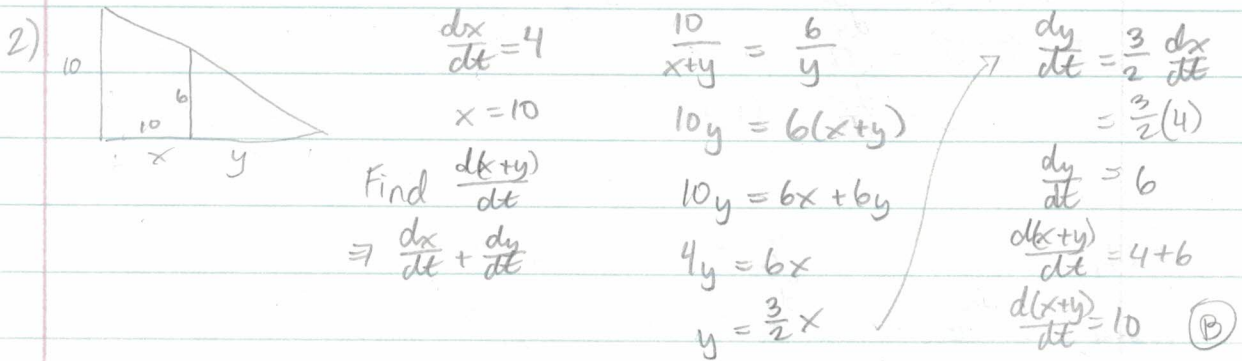 2)
10
6
10
x y
dx/dt = 4
x = 10
Find d(x+y)/dt
⇒ dx/dt + dy/dt
10/(x+y) = 6/y
10y = 6(x+y)
10y = 6x + 6y
4y = 6x
y = 3/2 x
dy/dt = 3/2 dx/dt
= 3/2 (4)
dy/dt = 6
d(x+y)/dt = 4+6
d(x+y)/dt = 10 Ⓑ